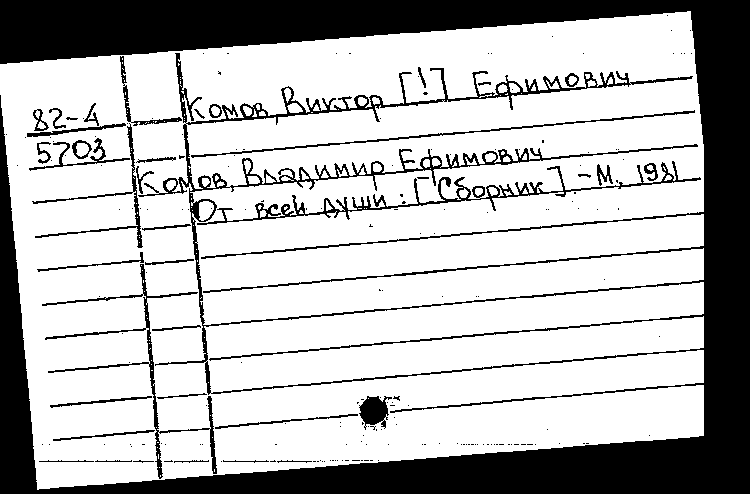 82-4 Комов, Виктор [!] Ефимович
5703
Комов, Владимир Ефимович
От всей души : [Сборник] - М, 1981